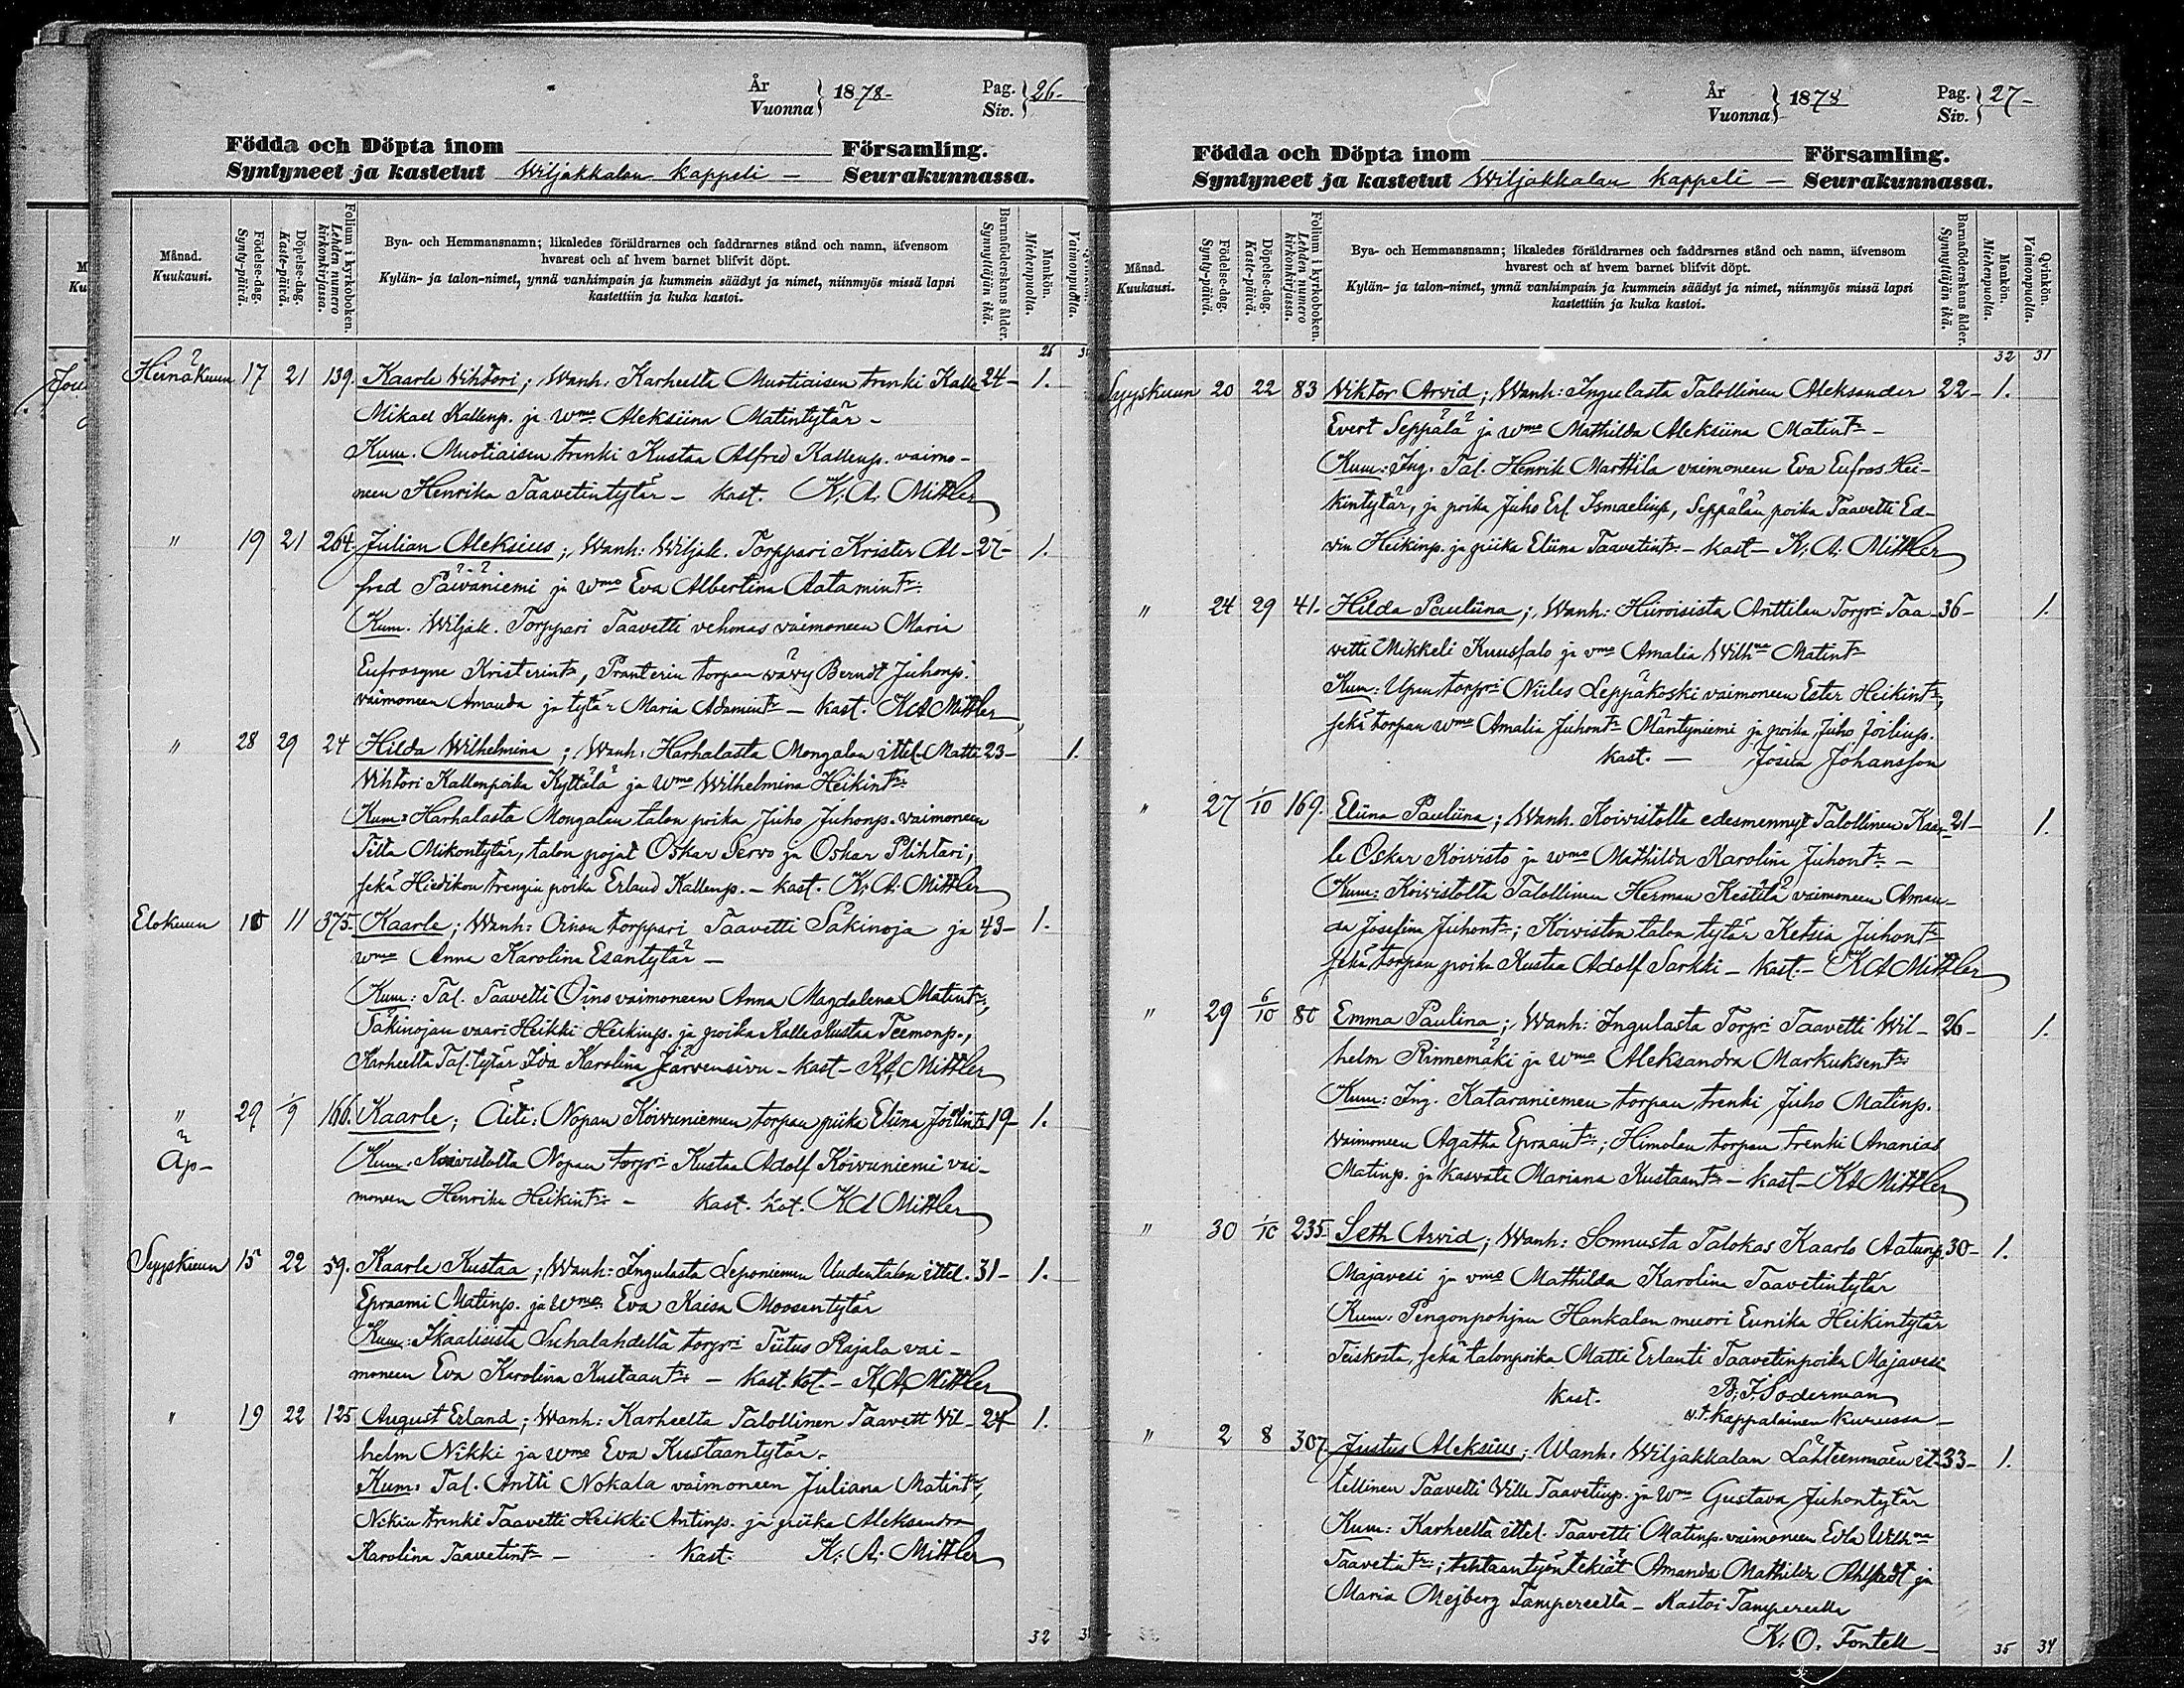 År
Vuonna } 1878-
Pag.
Siv. } 26-
Födda och Döpta inom Församling.
Syntyneet ja kastetut Wiljakkalan kappeli - Seurakunnassa.
Månad.
Kuukausi.
Födelse-dag.
Synty-päivä.
Döpelse-dag.
Kaste-päivä.
Folium i kyrkoboken.
Lehden numero
kirkonkirjassa.
Bya- och Hemmansnamn; likaledes föräldrarnes och faddrarnes stånd och namn, äfvensom
hvarest och af hvem barnet blifvit döpt.
Kylän- ja talon-nimet, ynnä vanhimpain ja kummein säädyt ja nimet, niinmyös missä lapsi
kastettiin ja kuka kastoi.
Barnaföderskans ålder.
Synnyttäjän ikä.
Mankön.
Miehenpuolia.
Vaimonpuolia.
Heinäkuun 17 21 139. Kaarle Vihtori; Wanh. Karheelta Muotiaisen trenki Kalle 24- 1.
Mikael Kallenp. ja Wmo Aleksiina Matintytär -
Kum. Muotiaisen trenki Kustaa Alfred Kallenp. vaimo-
neen Henrika Taavetintytär - kast. K. A. Mittler
" 19 21 264. Julian Aleksius; Wanh: Wiljak. Torppari Krister Al- 27- 1.
fred Päiväniemi ja Wmo Eva Albertina Aatamintr.
Kum. Wiljak. Torppari Taavetti vehmas vaimoneen Maria
Eufrosyne Kristerintr, Pranterin torpan vävy Berndt Juhonp.
vaimoneen Amanda ja tytär Maria Adamintr - kast. KAMittler
" 28 29 24 Hilda Wilhelmina; Wanh: Harhalasta Mongalan ittel. Matti 23- 1.
Vihtori Kallenpoika Kyttälä ja Wmo Wilhelmina Heikintr.
Kum: Harhalasta Mongalan talon poika Juho Juhonp. vaimoneen
Tilta Mikontytär, talon pojat Oskar Servo ja Oskar Plihtari,
sekä Hiedikon trengin poika Erland Kallenp. - kast. K. A. Mittler
Elokuun 10 11 375. Kaarle; Wanh: Oinon torppari Taavetti Säkinoja ja 43- 1.
wmo Anna Karolina Esantytär -
Kum: Tal. Taavetti Oino vaimoneen Anna Magdalena Matintr,
Säkinojan vaari Heikki Heikinp. ja poika Kalle Kustaa Teemonp.,
Karheelta Tal. tytär Ida Karolina Järvensivu - kast - K,A, Mittler
" 29 1/9 166. Kaarle; Äiti: Nopan Koivuniemen torpan piika Eliina Joilintr 19- 1.
Äp- Kum. Koivistolta Nopan torpri Kustaa Adolf Koivuniemi vai-
moneen Henrika Heikintr - kast. kot. KA Mittler
Syyskuun 15 22 59. Kaarle Kustaa; Wanh: Ingulasta Leponiemen Uudentalon ittel. 31- 1.
Epraami Matinp. ja Wmo Eva Kaisa Moosentytär
Kum: Ikaalisista Suhalahdella torpri Tiitus Rajala vai-
moneen Eva Karolina Kustaantr - kast. kot. - K,A, Mittler
" 19 22 125 August Erland; Wanh: Karheelta Talollinen Taavett Vil- 24 1.
helm Nikki ja Wmo Eva Kustaantytär.
Kum: Tal. Antti Nokala vaimoneen Juliana Matintr,
Nikin trenki Taavetti Heikki Antinp. ja piika Aleksandra
Karolina Taavetintr - kast. K. A. Mittler
32
År
Vuonna } 1878
Pag.
Siv. } 27-
Födda och Döpta inom Församling.
Syntyneet ja kastetut Wiljakkalan kappeli - Seurakunnassa.
Månad.
Kuukausi.
Födelse-dag.
Synty-päivä.
Döpelse-dag.
Kaste-päivä.
Folium i kyrkoboken.
Lehden numero
kirkonkirjassa.
Bya- och Hemmansnamn; likaledes föräldrarnes och faddrarnes stånd och namn, äfvensom
hvarest och af hvem barnet blifvit döpt.
Kylän- ja talon-nimet, ynnä vanhimpain ja kummein säädyt ja nimet, niinmyös missä lapsi
kastettiin ja kuka kastoi.
Barnaföderskans ålder.
Synnyttäjän ikä.
Mankön.
Miehenpuolia.
Qvinkön.
Vaimonpuolia.
32 31
Syyskuun 20 22 83 Viktor Arvid; Wanh: Ingulasta Talollinen Aleksander 22- 1.
Evert Seppälä ja wmo Mathilda Aleksiina Matintr -
Kum: Ing. Tal. Henrik Marttila vaimoneen Eva Eufros. Hei-
kintytär, ja poika Juho Erl. Ismaelinp, Seppälän poika Taavetti Ed-
vin Heikinp. ja piika Eliina Taavetintr. - kast - K. A. Mittler
" 24 29 41. Hilda Pauliina; Wanh: Hiiroisista Anttilan Torpri Taa- 36- 1.
vetti Mikkeli Kuusalo ja vmo Amalia Wilhna Matintr
Kum: Upan torpri Niiles Leppäkoski vaimoneen Ester Heikintr,
sekä torpan wmo Amalia Juhontr Mäntyniemi ja poika Juho Joilinp.
kast. - Josua Johansson
" 27 1/10 169. Eliina Pauliina; Wanh. Koivistolta edesmennyt Talollinen Kaar- 21- 1.
le Oskar Koivisto ja wmo Mathilda Karolina Juhontr -
Kum: Koivistolta Talollinen Herman Kestilä vaimoneen Aman-
da Josefina Juhontr; Koiviston talon tytär Ketsia Juhontr
sekä torpan poika Kustaa Adolf Sarkki - kast. - KA Mittler
" 29 6/10 80 Emma Paulina; Wanh: Ingulasta Torpri Taavetti Wil- 26- 1.
helm Rinnemäki ja Wmo Aleksandra Markuksentr
Kum: Ing. Kataraniemen torpan trenki Juho Matinp.
vaimoneen Agatha Epraantr; Himolan torpan trenki Ananias
Matinp. ja kasvate Mariana Kustaantr - kast - KA Mittler
" 30 1/10 235 Seth Arvid; Wanh: Sonnusta Talokas Kaarlo Aatunp. 30- 1.
Majavesi ja vmo Mathilda Karolina Taavetintytär
Kum: Pengonpohjan Hankalan muori Eunika Heikintytär
Teiskosta, sekä talonpoika Matti Erlanti Taavetinpoika Majavesi
kast. B. J. Söderman
v.t. kappalainen Kurussa -
" 2 8 307 Justus Aleksius; Wanh: Wiljakkalan Lähteenmäen it- 33- 1.
tellinen Taavetti Ville Taavetinp. ja Wmo Gustava Juhontytär
Kum: Karheella ittel. Taavetti Matinp. vaimoneen Edla Wilhna
Taavetintr; tehtaantyöntekiät Amanda Mathilda Ahlstedt ja
Maria Mejberg Tampereelta - Kastoi Tampereella
K. O. Fontell -
35 34